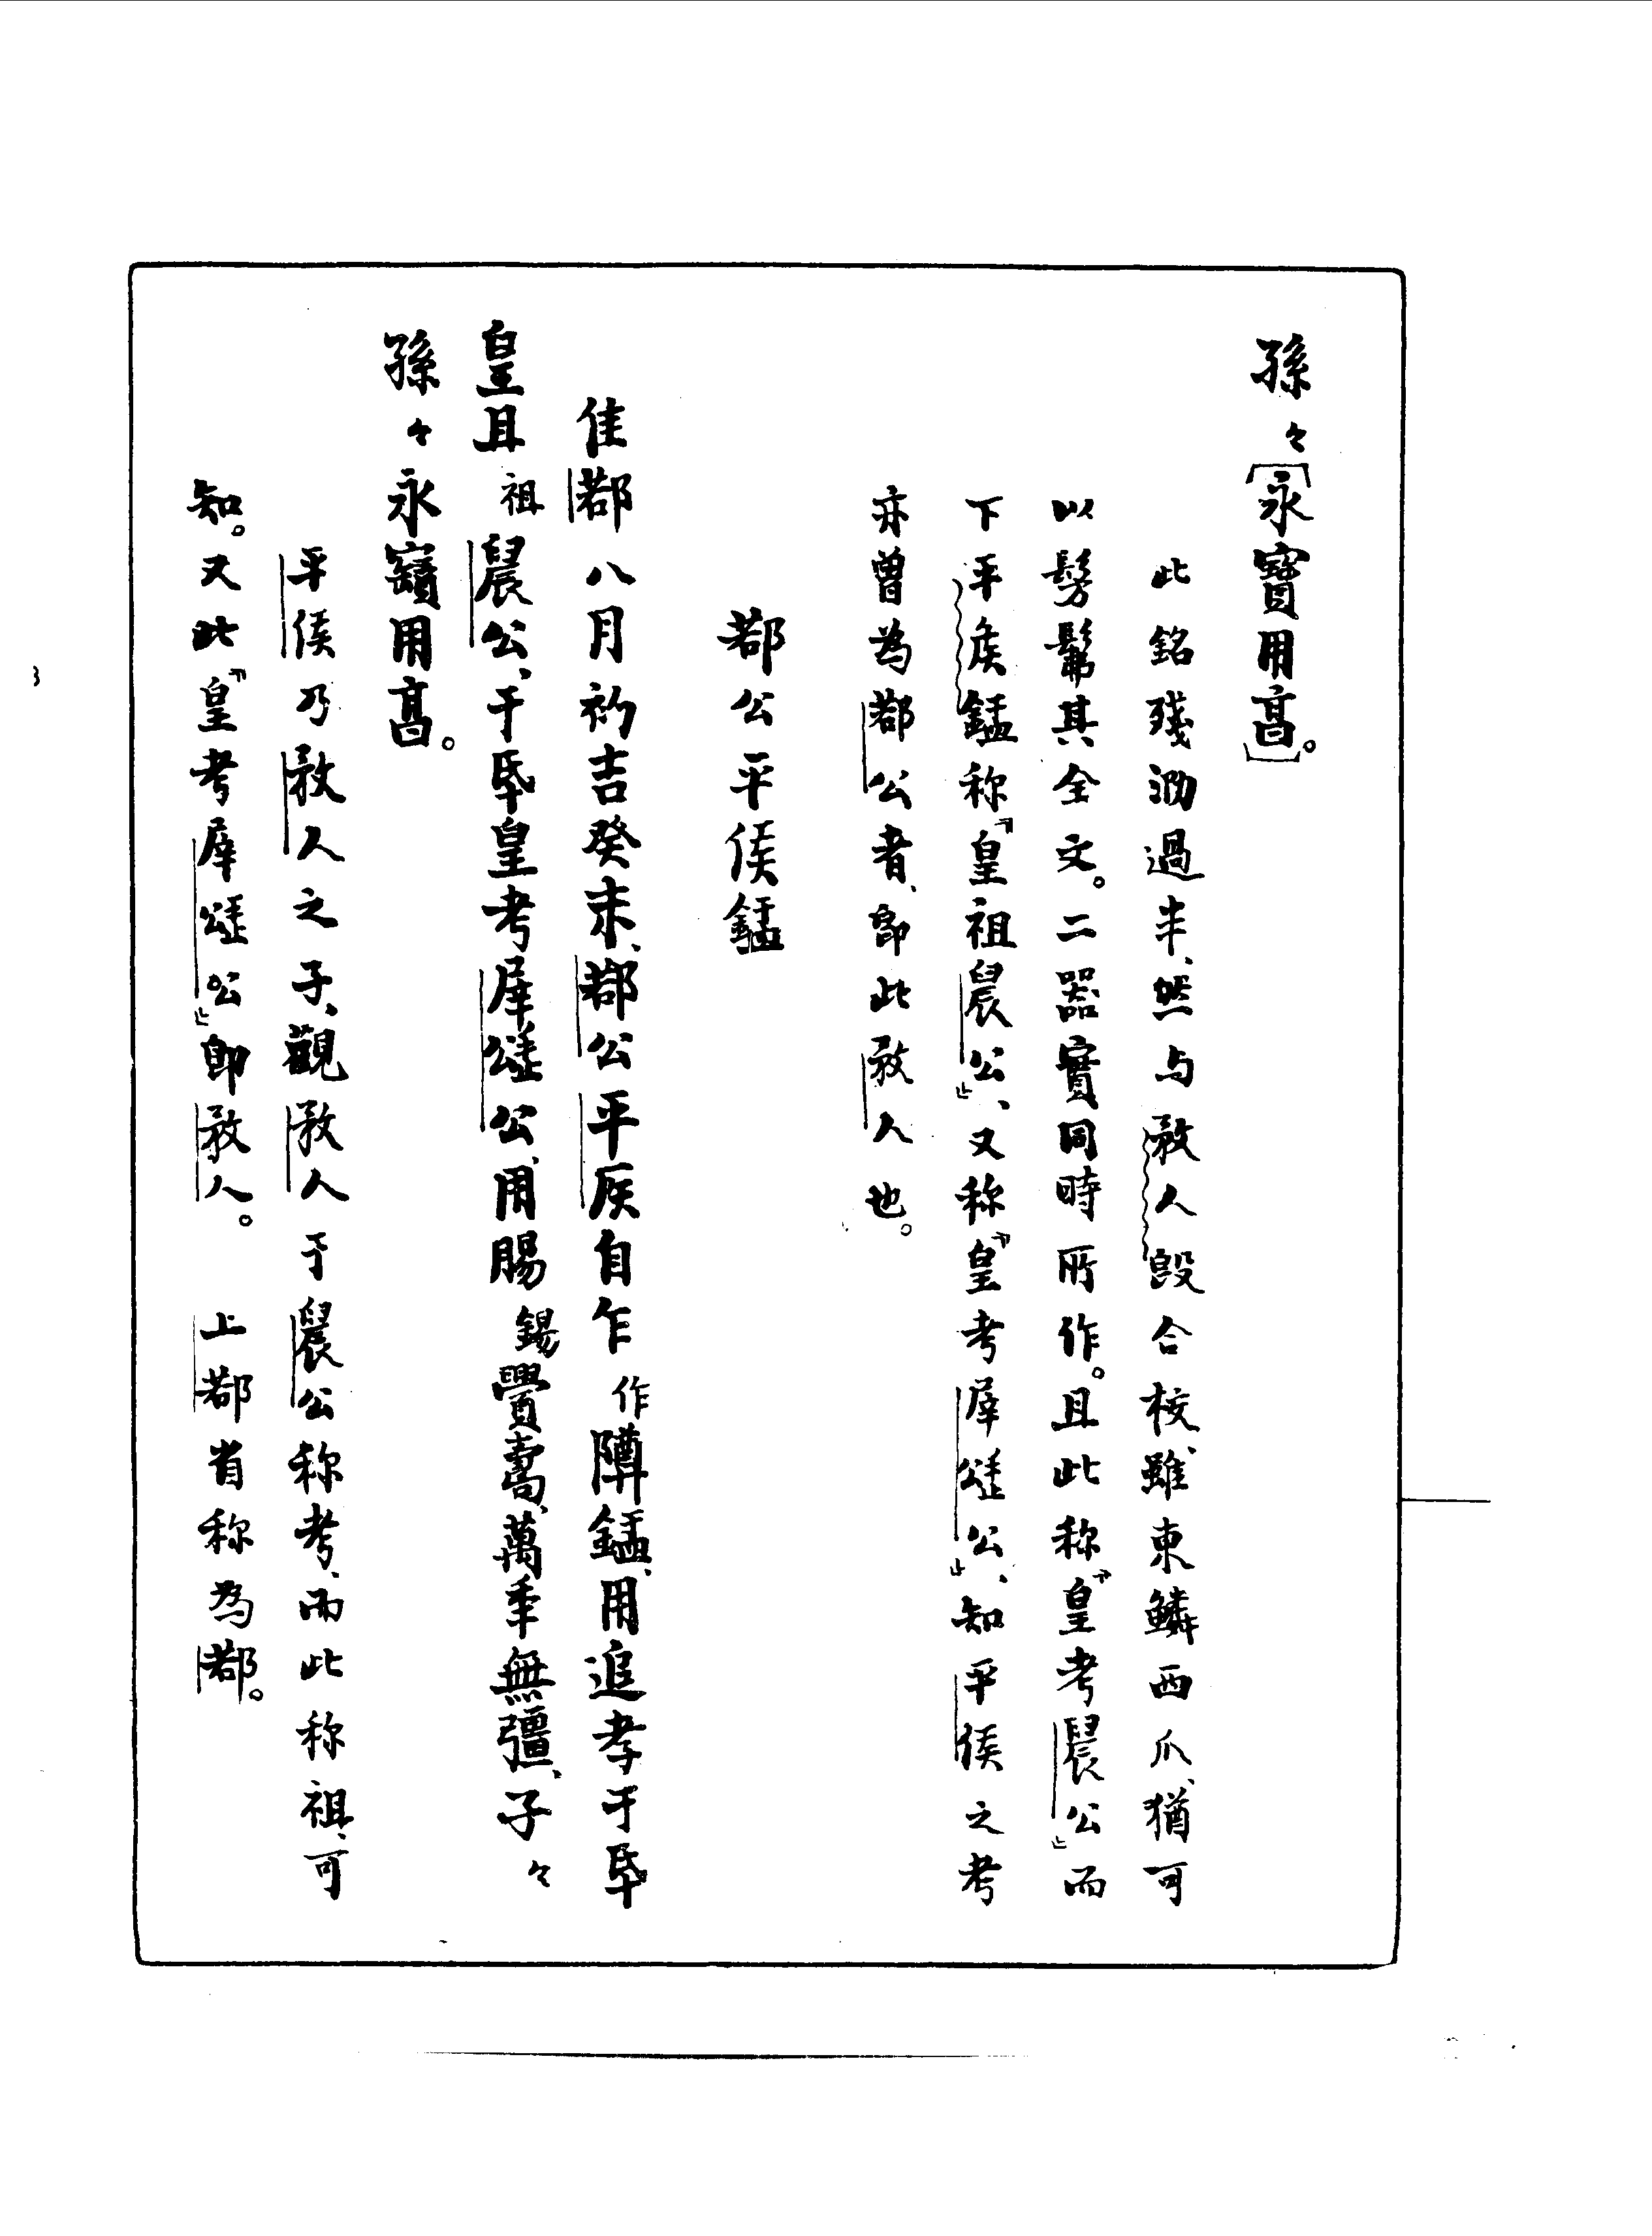 孫々〔永寶用亯〕。
此銘殘泐過半、然与敄人𣪘合校、雖東鱗西爪、猶可
以髣髴其全文。二器實同時所作。且此称『皇考晨公』而
下平侯錳称『皇祖晨公』、又称『皇考屖公』、知平侯之考
亦曾為鄀公者、即此敄人也。
鄀公平侯錳
隹鄀八月初吉癸未、鄀公平侯自乍作䵼錳、用追孝于氒
皇且祖晨公、于氒皇考屖公、用賜錫眉壽、萬年無彊、子々
孫々永寶用亯。
平侯乃敄人之子、觀敄人于晨公称考、而此称祖、可
知。又此『皇考屖公』即敄人。上鄀省称為鄀。